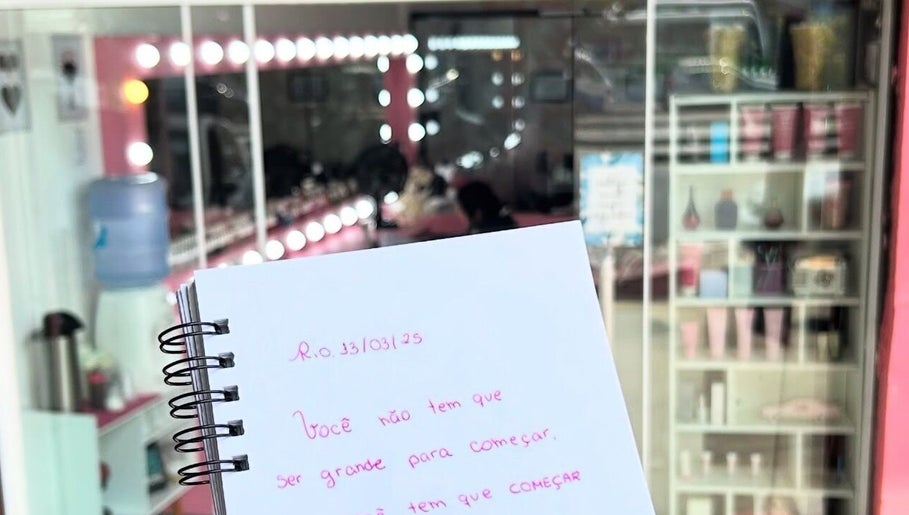 R.O. 13/03/25
Você não tem que
ser grande para começar.
tem que COMEÇAR